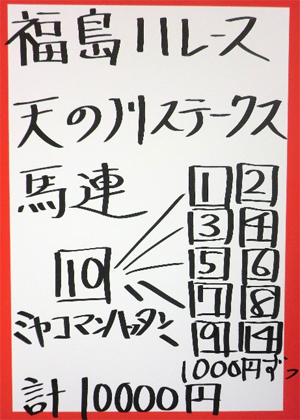 福島11レース
天の川ステークス
馬連
1 2
3 4
5 6
10
7 8
ミヤコマンハッタン
9 14
1000円ずつ
計10000円